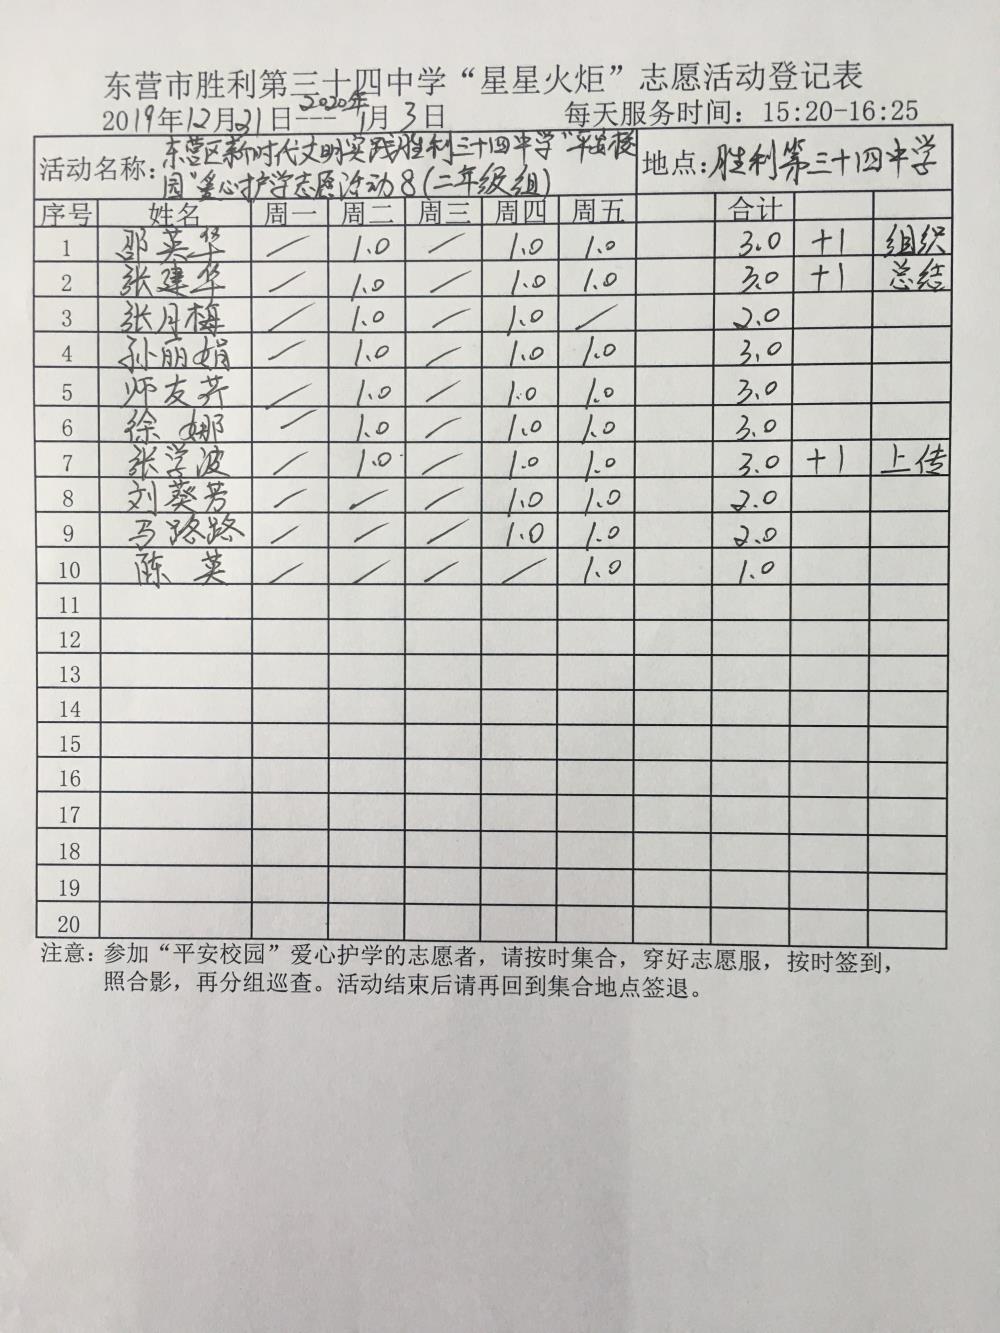 东营市胜利第三十四中学“星星火炬”志愿活动登记表
2019年12月21日---2020年1月3日 每天服务时间：15:20-16:25
活动名称：东营区新时代文明实践胜利三十四中学“平安校园”爱心护学志愿活动8(二年级组) 地点：胜利第三十四中学
序号 姓名 周一 周二 周三 周四 周五 合计
1 邵英华 / 1.0 / 1.0 1.0 3.0 +1 组织
2 张建华 / 1.0 / 1.0 1.0 3.0 +1 总结
3 张月梅 / 1.0 / 1.0 / 2.0
4 孙丽娟 / 1.0 / 1.0 1.0 3.0
5 师友芹 / 1.0 / 1.0 1.0 3.0
6 徐娜 / 1.0 / 1.0 1.0 3.0
7 张学波 / 1.0 / 1.0 1.0 3.0 +1 上传
8 刘葵芳 / / / 1.0 1.0 2.0
9 马路路 / / / 1.0 1.0 2.0
10 陈英 / / / / 1.0 1.0
11
12
13
14
15
16
17
18
19
20
注意：参加“平安校园”爱心护学的志愿者，请按时集合，穿好志愿服，按时签到，
照合影，再分组巡查。活动结束后请再回到集合地点签退。